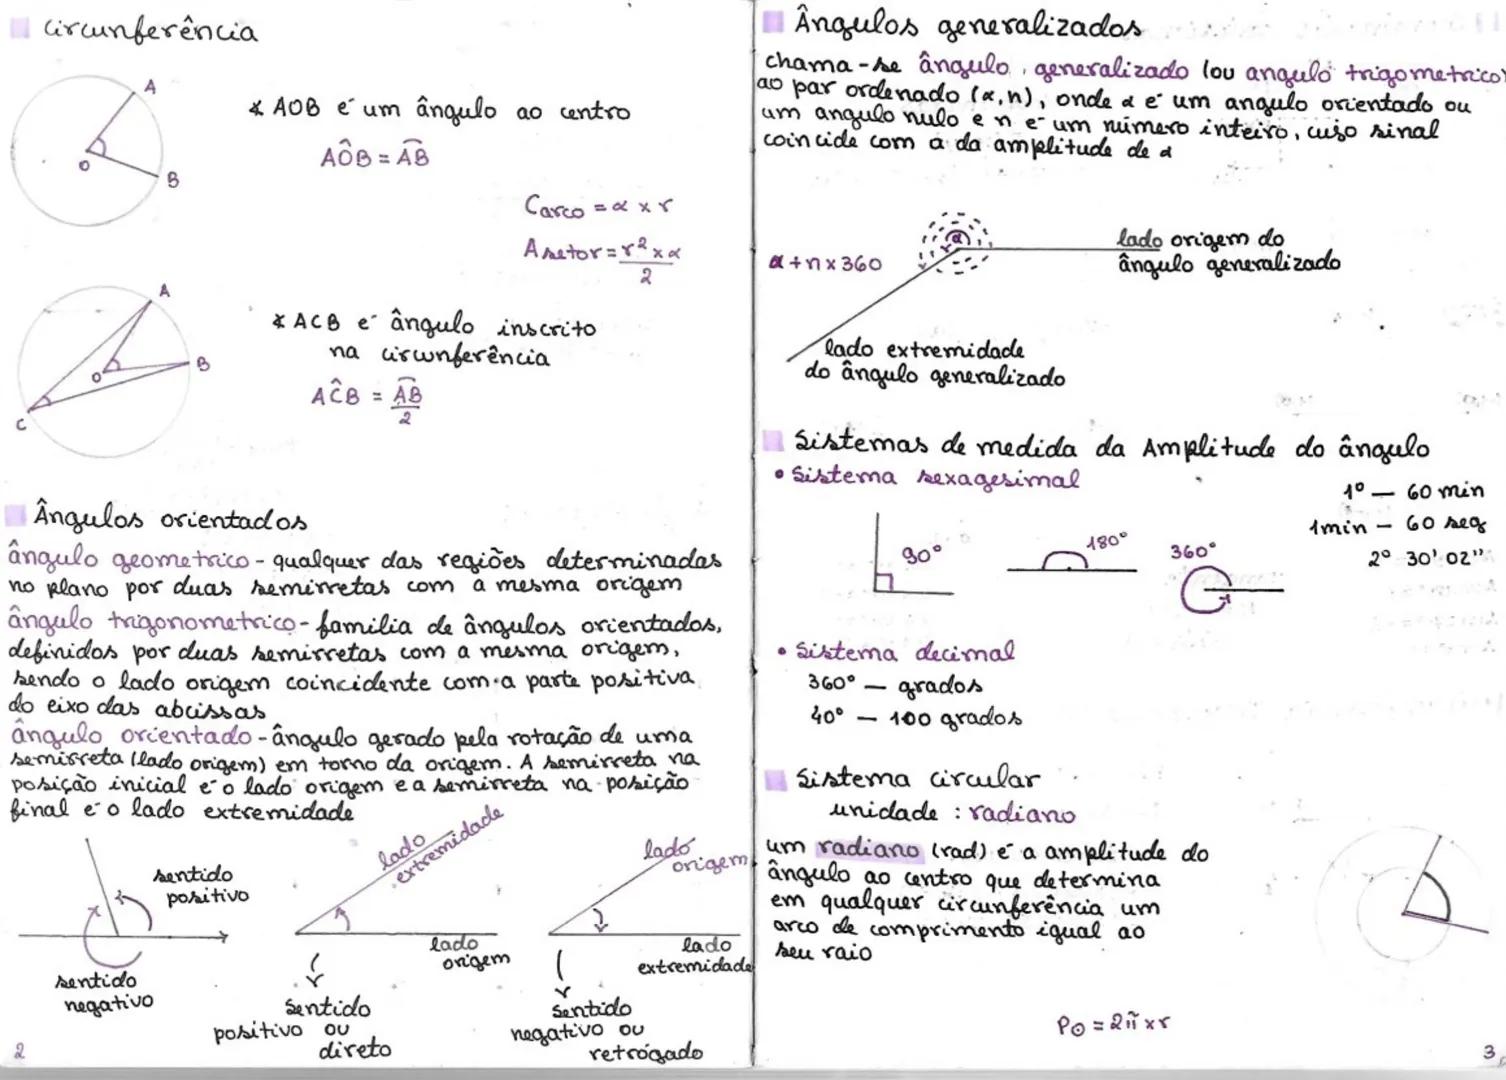 circunferência
A
O
B
∡ AOB é um ângulo ao centro
AÔB = AB
Carco = α x r
Asetor = r² x α
2
A
O
B
C
∡ ACB é ângulo inscrito
na circunferência
AĈB = AB
2
Ângulos orientados
ângulo geometrico - qualquer das regiões determinadas
no plano por duas semirretas com a mesma origem
ângulo trigonometrico - familia de ângulos orientados,
definidos por duas semirretas com a mesma origem,
sendo o lado origem coincidente com a parte positiva
do eixo das abcissas
ângulo orientado - ângulo gerado pela rotação de uma
semirreta (lado origem) em torno da origem. A semirreta na
posição inicial é o lado origem e a semirreta na posição
final é o lado extremidade
sentido
positivo
sentido
negativo
lado
extremidade
lado
origem
Sentido
positivo ou
direto
lado
origem
lado
extremidade
Sentido
negativo ou
retrógado
2
Ângulos generalizados
chama-se ângulo generalizado (ou angulo trigometrico)
ao par ordenado (α,n), onde α é um angulo orientado ou
um angulo nulo e n é um número inteiro, cujo sinal
coincide com a da amplitude de α
α + n x 360
α
lado origem do
ângulo generalizado
lado extremidade
do ângulo generalizado
Sistemas de medida da Amplitude do ângulo
• Sistema sexagesimal
1º — 60 min
1min — 60 seg
2º 30' 02"
90º
180º
360º
• Sistema decimal
360º — grados
40º — 100 grados
Sistema circular
unidade : radiano
um radiano (rad) é a amplitude do
ângulo ao centro que determina
em qualquer circunferência um
arco de comprimento igual ao
seu raio
P⊙ = 2π x r
3